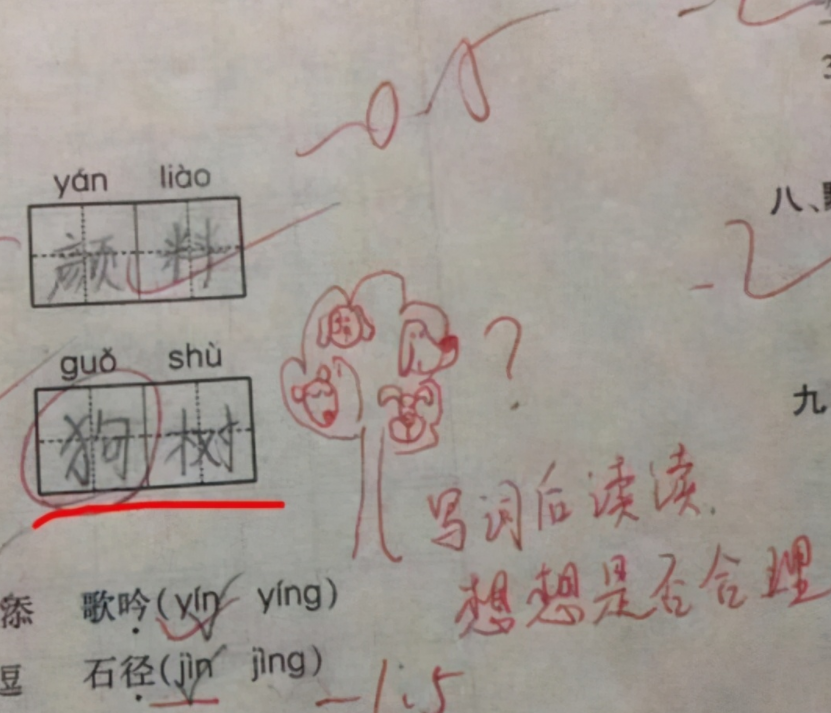 yán liào
颜料
guǒ shù
狗树
?
写词后读读.
想想是否合理
添 歌吟(yín yíng)
豆 石径(jìn jìng)
-1.5
八、
九